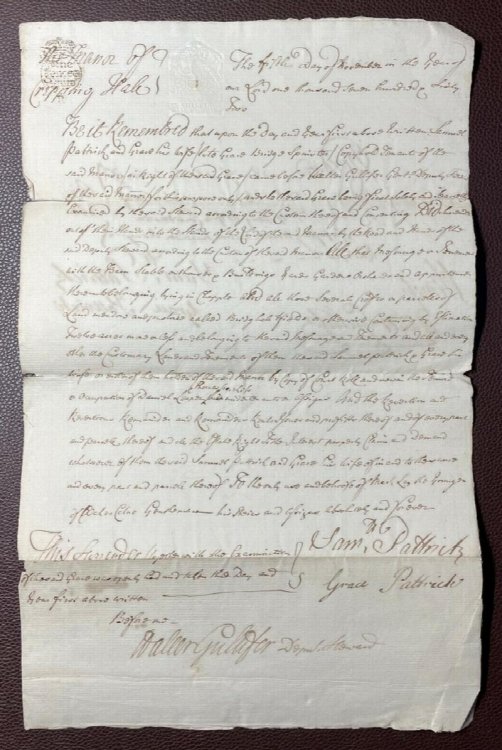 The Manor of
Cripping Hall
The fifth Day of November in the Year of
our Lord one thousand Seven hundred & Sixty
Two
Be it Remembred that upon the Day and Year first above Written Samuel
Patrick and Grace his wife late Grace Bridge Spinster Copyhold Tenants of the
said Manor in Right of the said Grace came before Walter Gulifer Gent Deputy Steward
of the said Manor for this purpose only and the said Grace being first Solely and Secretly
Examined by the said Steward according to the Custom thereof and consenting Did Surrender
out of their Hands into the Hands of the Lord of the said Manor by the Hands and Means of the
said Deputy Steward according to the Custom of the said Manor All that Messuage or Tenement
with the Barn Stable Yards Gardens Orchard and Appurtenances
thereunto belonging lying in And also those Several Crofts or parcells of
Land meadow and pasture called containing by Estimation
Twelve acres more or less and belonging to the said Messuage and Tenement and all and every
other the Customary Lands and Tenements of them the said Samuel Patrick & Grace his
wife or either of them holden of the said Manor by Copy of Court Roll and now in the Tenure
& Occupation of Daniel or Assigns And the Reversion and
Reversions Remainder and Remainders Rents Issues and profits thereof and of every part
and parcell thereof and all the Estate Right Title Interest property Claim and demand
whatsoever of them the said Samuel Patrick and Grace his wife of in and to the same
and every part and parcell thereof To the only use and behoof of the Younger
of Gentleman his Heirs and Assigns absolutely and forever
This Surrender together with the Examination
of the said Grace was taken the Day and
Year first above written
Before me
Walter Gulifer Deputy Steward
Sam Pattrick
Grace Pattrick